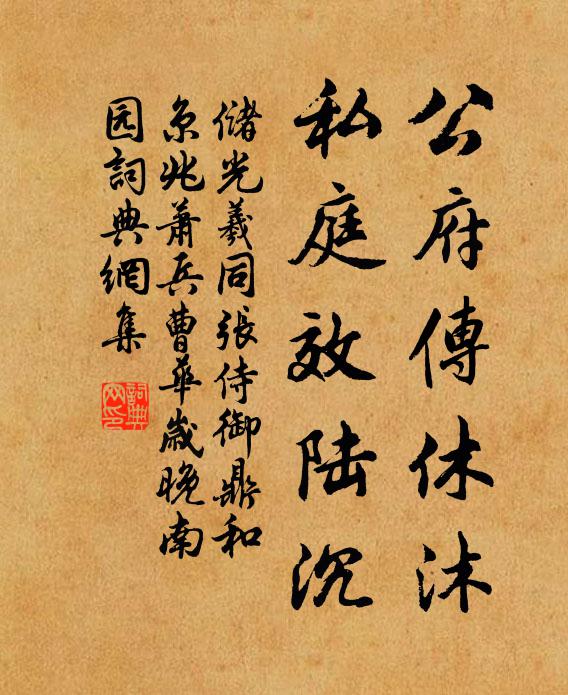 公府傳休沐
私庭效陆沉
储光羲同張侍御鼎和
京兆蕭兵曹華歲晚南
园詞典網集
詞典
网印